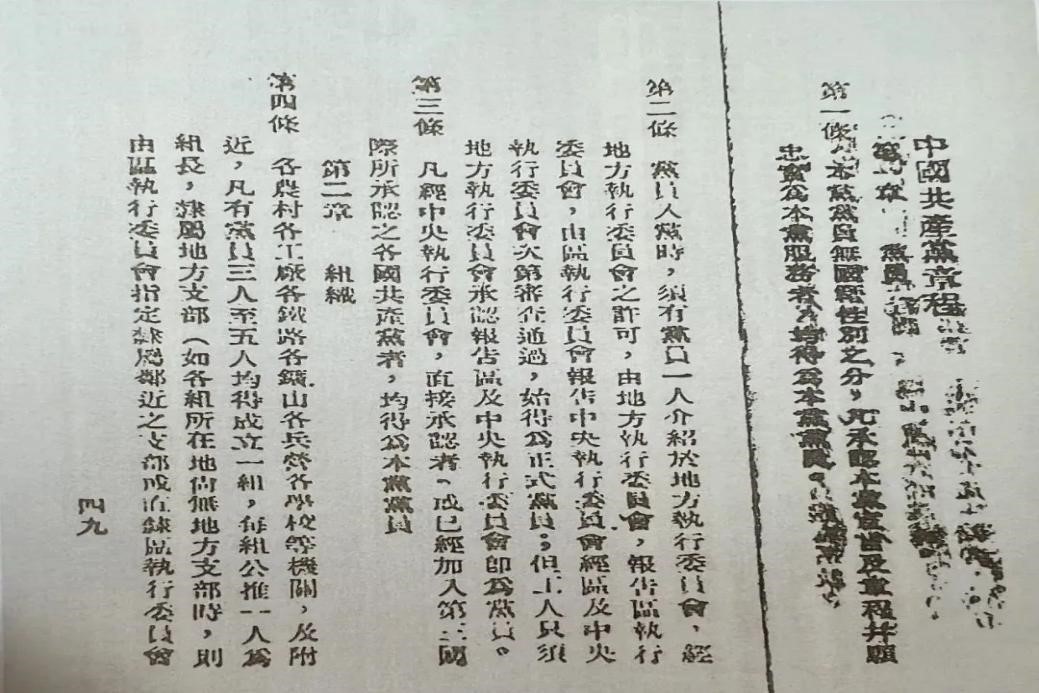 中國共產黨章程
第一章 黨員
第一條 本黨黨員無國籍性別之分，凡承認本黨宣言及章程并願
忠實爲本黨服務者，均得爲本黨黨員。
第二條 黨員入黨時，須有黨員一人介紹於地方執行委員會，經
地方執行委員會之許可，由地方執行委員會，報告區執行
委員會，由區執行委員會報告中央執行委員會經區及中央
執行委員會次第審查通過，始得爲正式黨員；但工人只須
地方執行委員會承認報告區及中央執行委員會即爲黨員。
第三條 凡經中央執行委員會，直接承認者、或已經加入第三國
際所承認之各國共產黨者，均得爲本黨黨員
第二章 組織
第四條 各農村各工廠各鐵路各鑛山各兵營各學校等機關，及附
近，凡有黨員三人至五人均得成立一組，每組公推一人爲
組長，隸屬地方支部（如各組所在地尚無地方支部時，則
由區執行委員會指定隸屬鄰近之支部或直隸區執行委員會
四九